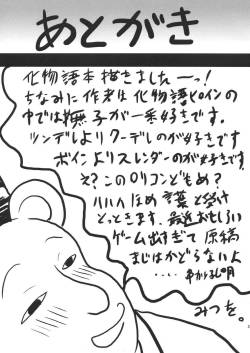 あとがき
化物語本描きましたーっ！
ちなみに作者は化物語ヒロインの
中では撫子が一番好きです。
ツンデレよりクーデレのが好きです
ボインよりスレンダーのが好きです。
え？このロリコンどもめ？
ハハハほめ言葉と受け
とっときます。最近おもしろい
ゲーム出すぎて原稿
まじはかどらないよ
みつを。